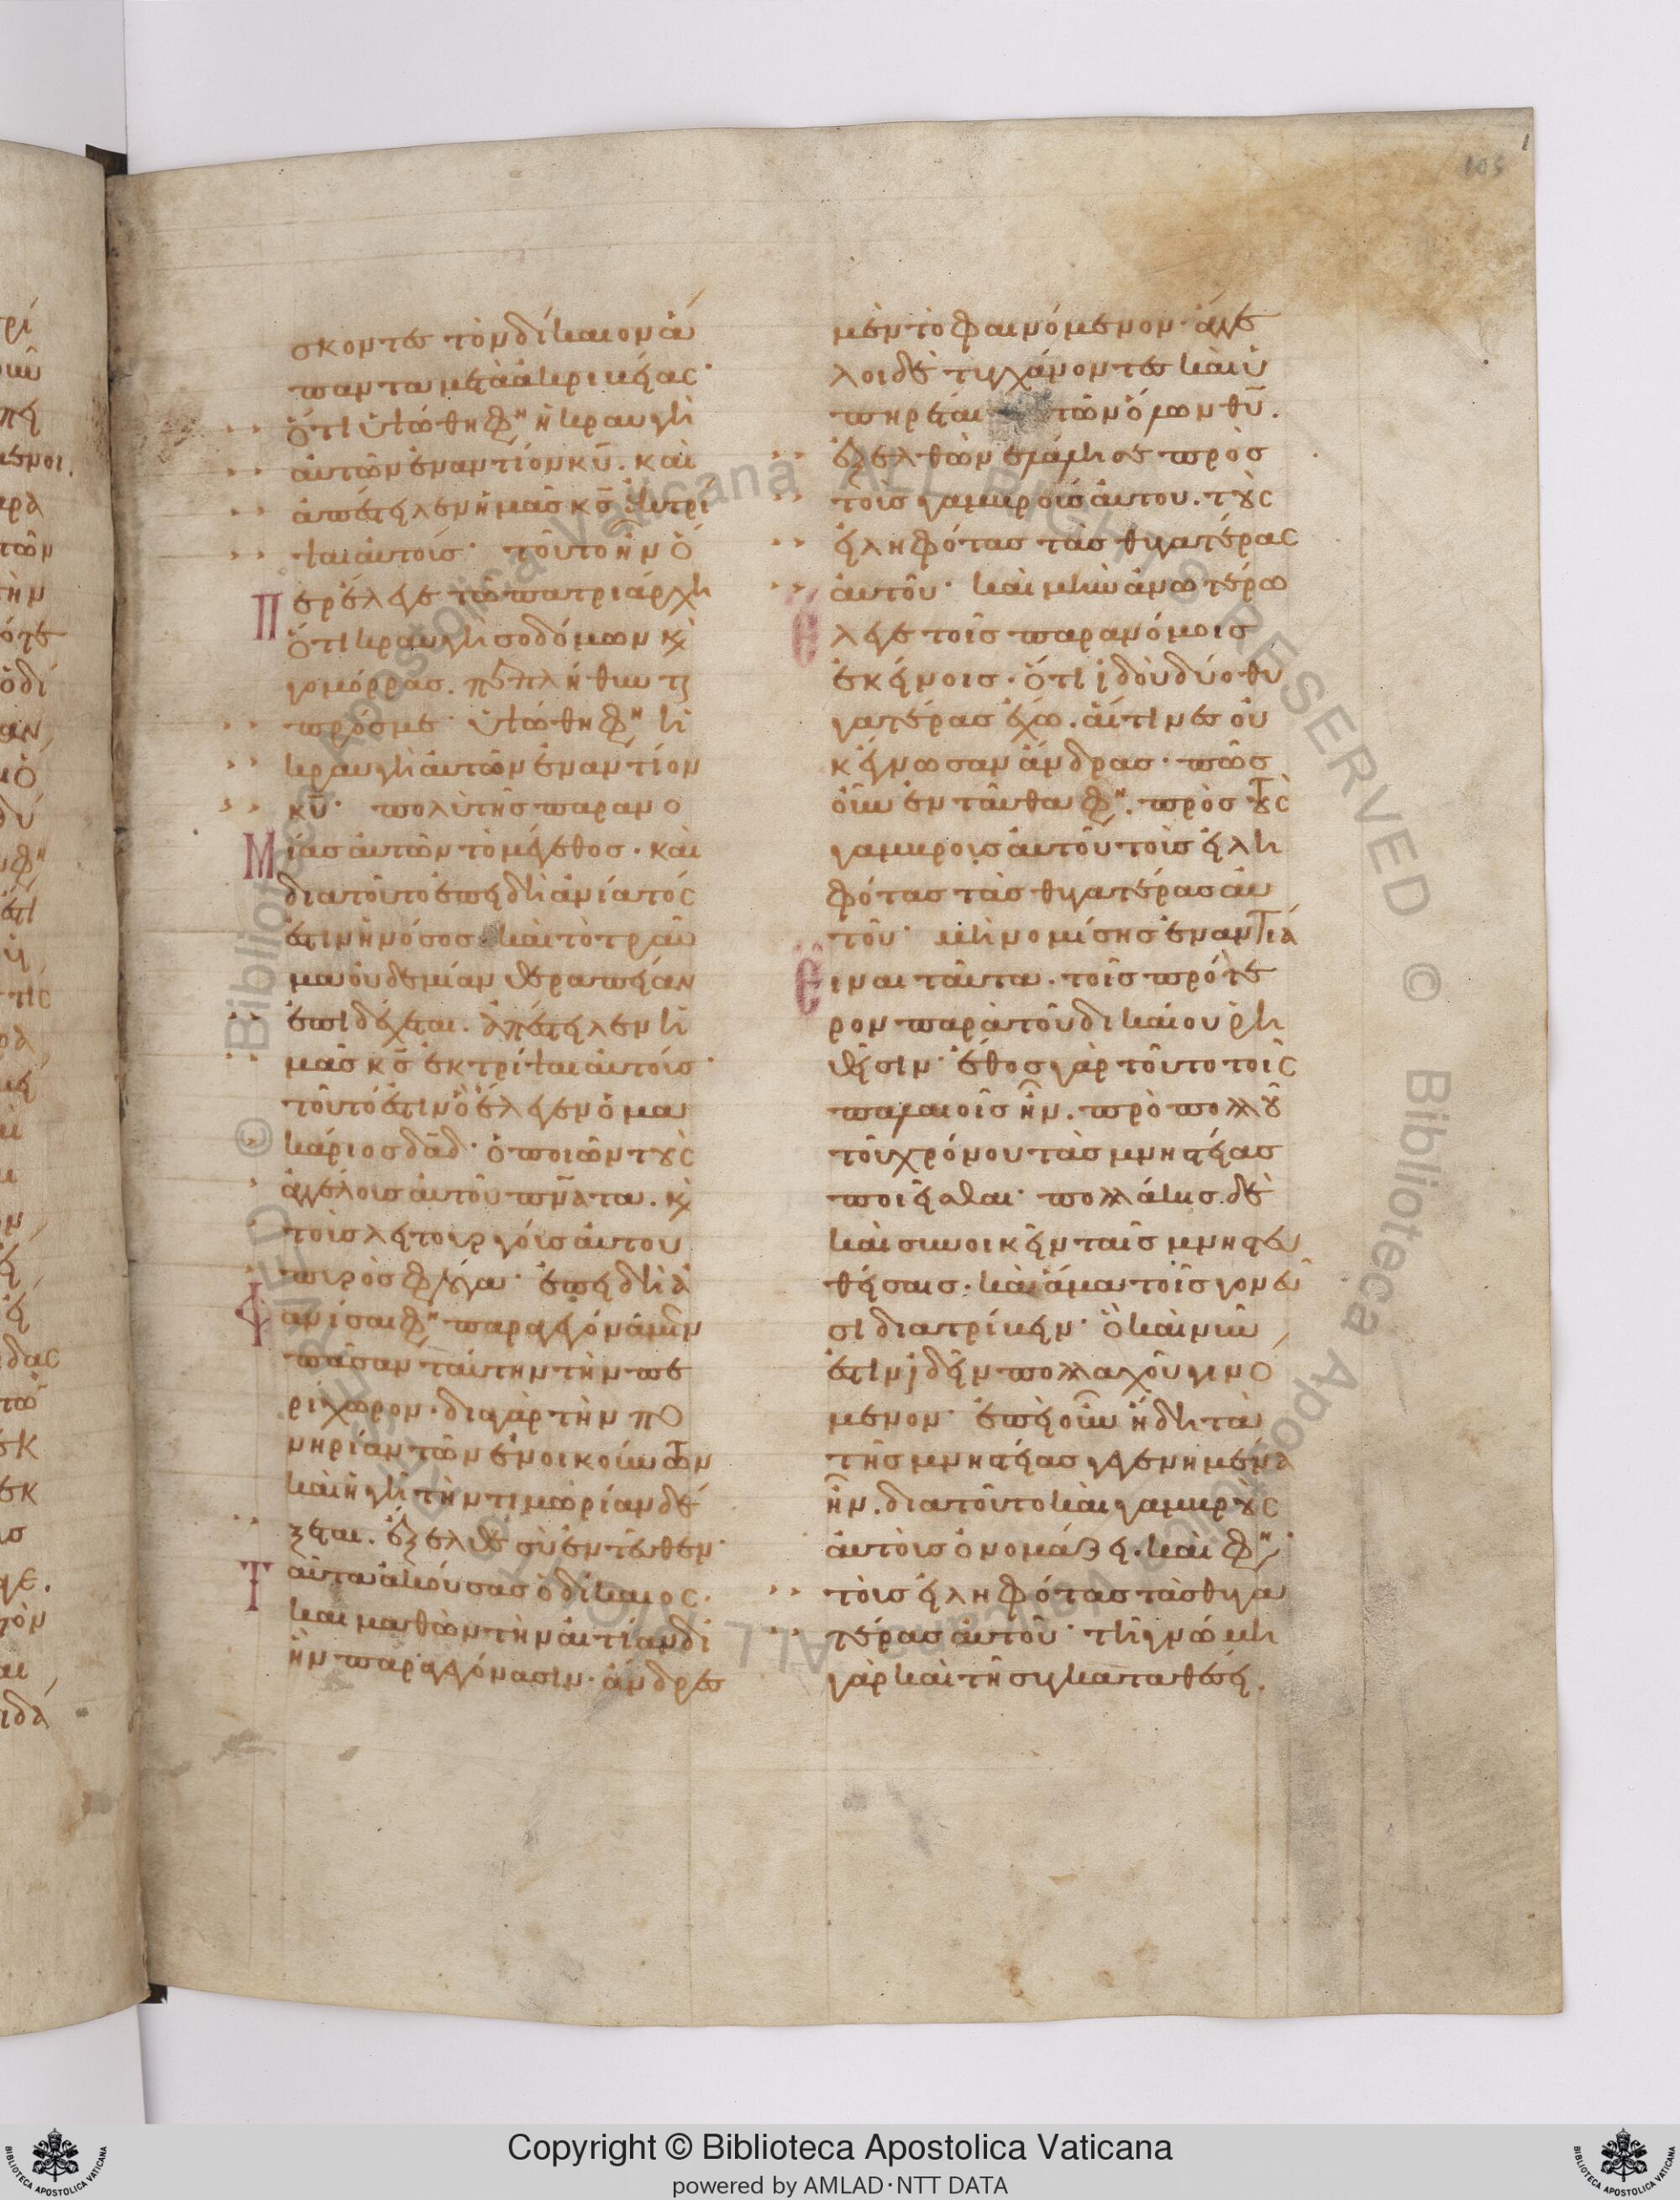 105
σκοντες τὸν δίκαιον ἅ
παντα μετὰ ἀκριβείας·
ὅτι ὑψώθη φη(σὶν) ἡ κραυγὴ
αὐτῶν ἐναντίον κ̅υ̅. καὶ
ἀπέστειλεν ἡμᾶς κ̅ς̅ ἐκτρί
ψαι αὐτούς· τοῦτο ἦν ὅ
περ ἔλεγε τῶ πατριάρχη
ὅτι κραυγὴ σοδόμων κ(αὶ)
γομόρρας. πεπλήθυνται
πρός με· ὑψώθη φη(σὶν) ἡ
κραυγὴ αὐτῶν ἐναντίον
κ̅υ̅· πολὺ τῆς παρανο
μίας αὐτῶν τὸ μέγεθος· καὶ
διατοῦτο ἐπειδὴ ἀνίατός
ἐστιν ἡ νόσος καὶ τὸ τραῦ
μα οὐδεμίαν θεραπείαν
ἐπιδέχεται. ἀπέστειλεν ἡ
μᾶς κ̅ς̅ ἐκτρίψαι αὐτούς·
τοῦτό ἐστιν ὃ ἔλεγεν ὁ μα
κάριος δ̅α̅δ̅· ὁ ποιῶν τοὺς
ἀγγέλους αὐτοῦ πν̅ατα. κ(αὶ)
τοὺς λειτουργοὺς αὐτου
πυρὸς φλόγα· ἐπειδὴ ἀ
φανίσαι φη(σὶν) παραγεγόναμεν
πᾶσαν ταύτην τὴν πε
ρίχωρον· διὰ γὰρ τὴν πο
νηρίαν τῶν ἐνοικούντων
καὶ ἡ γῆ τὴν τιμωρίαν δέ
ξεται. ἔξελθε σὺ ἐντεῦθεν·
ταῦτα ἀκούσας ὁ δίκαιος·
καὶ μαθὼν τὴν αἰτίαν δι
ἣν παραγεγόνασιν· ἄνδρες
μὲν τὸ φαινόμενον· ἄγγε
λοι δὲ τυγχάνοντες καὶ ὑ
πηρέται τῶν ὅλων θ̅υ̅.
ἐξελθὼν ἐλάλησε πρὸς
τοὺς γαμβροὺς αὐτου. τοὺς
εἰληφότας τὰς θυγατέρας
αὐτοῦ· καὶ μὴν ἀνωτέρω
ἔλεγε τοῖς παρανόμοις
ἐκείνοις· ὅτι ἰδοὺ δύο θυ
γατέρας ἔχω. αἵτινες οὐ
κ ἔγνωσαν ἄνδρας· πῶς
οὖν ἐνταῦθα φη(σὶν). πρὸς τοὺς
γαμβροὺς αὐτοῦ τοὺς εἰλη
φότας τὰς θυγατέρας αὐ
τοῦ· μὴ νομίσης ἐναντία
εἶναι ταῦτα. τοῖς πρότε
ρον παρὰ τοῦ δικαίου ῥη
θεῖσιν· ἔθος γὰρ τοῦτο τοῖς
παλαιοῖς ἦν. πρὸ πολλοῦ
τοῦ χρόνου τὰς μνηστείας
ποιεῖσθαι· πολλάκις δὲ
καὶ συνοικεῖν ταῖς μνηστευ
θείσαις· καὶ ἅμα τοῖς γονεῦ
σι διατρίβειν· ὃ καὶ νῦν
ἔστιν ἰδεῖν πολλαχοῦ γινό
μενον· ἐπεὶ οὖν ἤδη τὰ
τῆς μνηστείας γεγενημένα
ἦν. διατοῦτο καὶ γαμβροὺς
αὐτοὺς ὀνομάζει· καὶ φη(σὶν)·
τοὺς εἰληφότας τὰς θυγα
τέρας αὐτοῦ· τῆ γνώμη
γὰρ καὶ τῆ συγκαταθέσει.
Copyright © Biblioteca Apostolica Vaticana
powered by AMLAD·NTT DATA